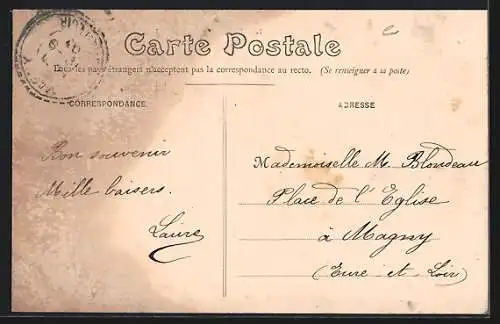 Carte Postale
Tous les pays étrangers n'acceptent pas la correspondance au recto. (Se renseigner à la poste)
CORRESPONDANCE
ADRESSE
Bon souvenir
Mille baisers.
Laure
Mademoiselle M. Blondeau
Place de l'Eglise
à Magny
(Eure-et-Loir)